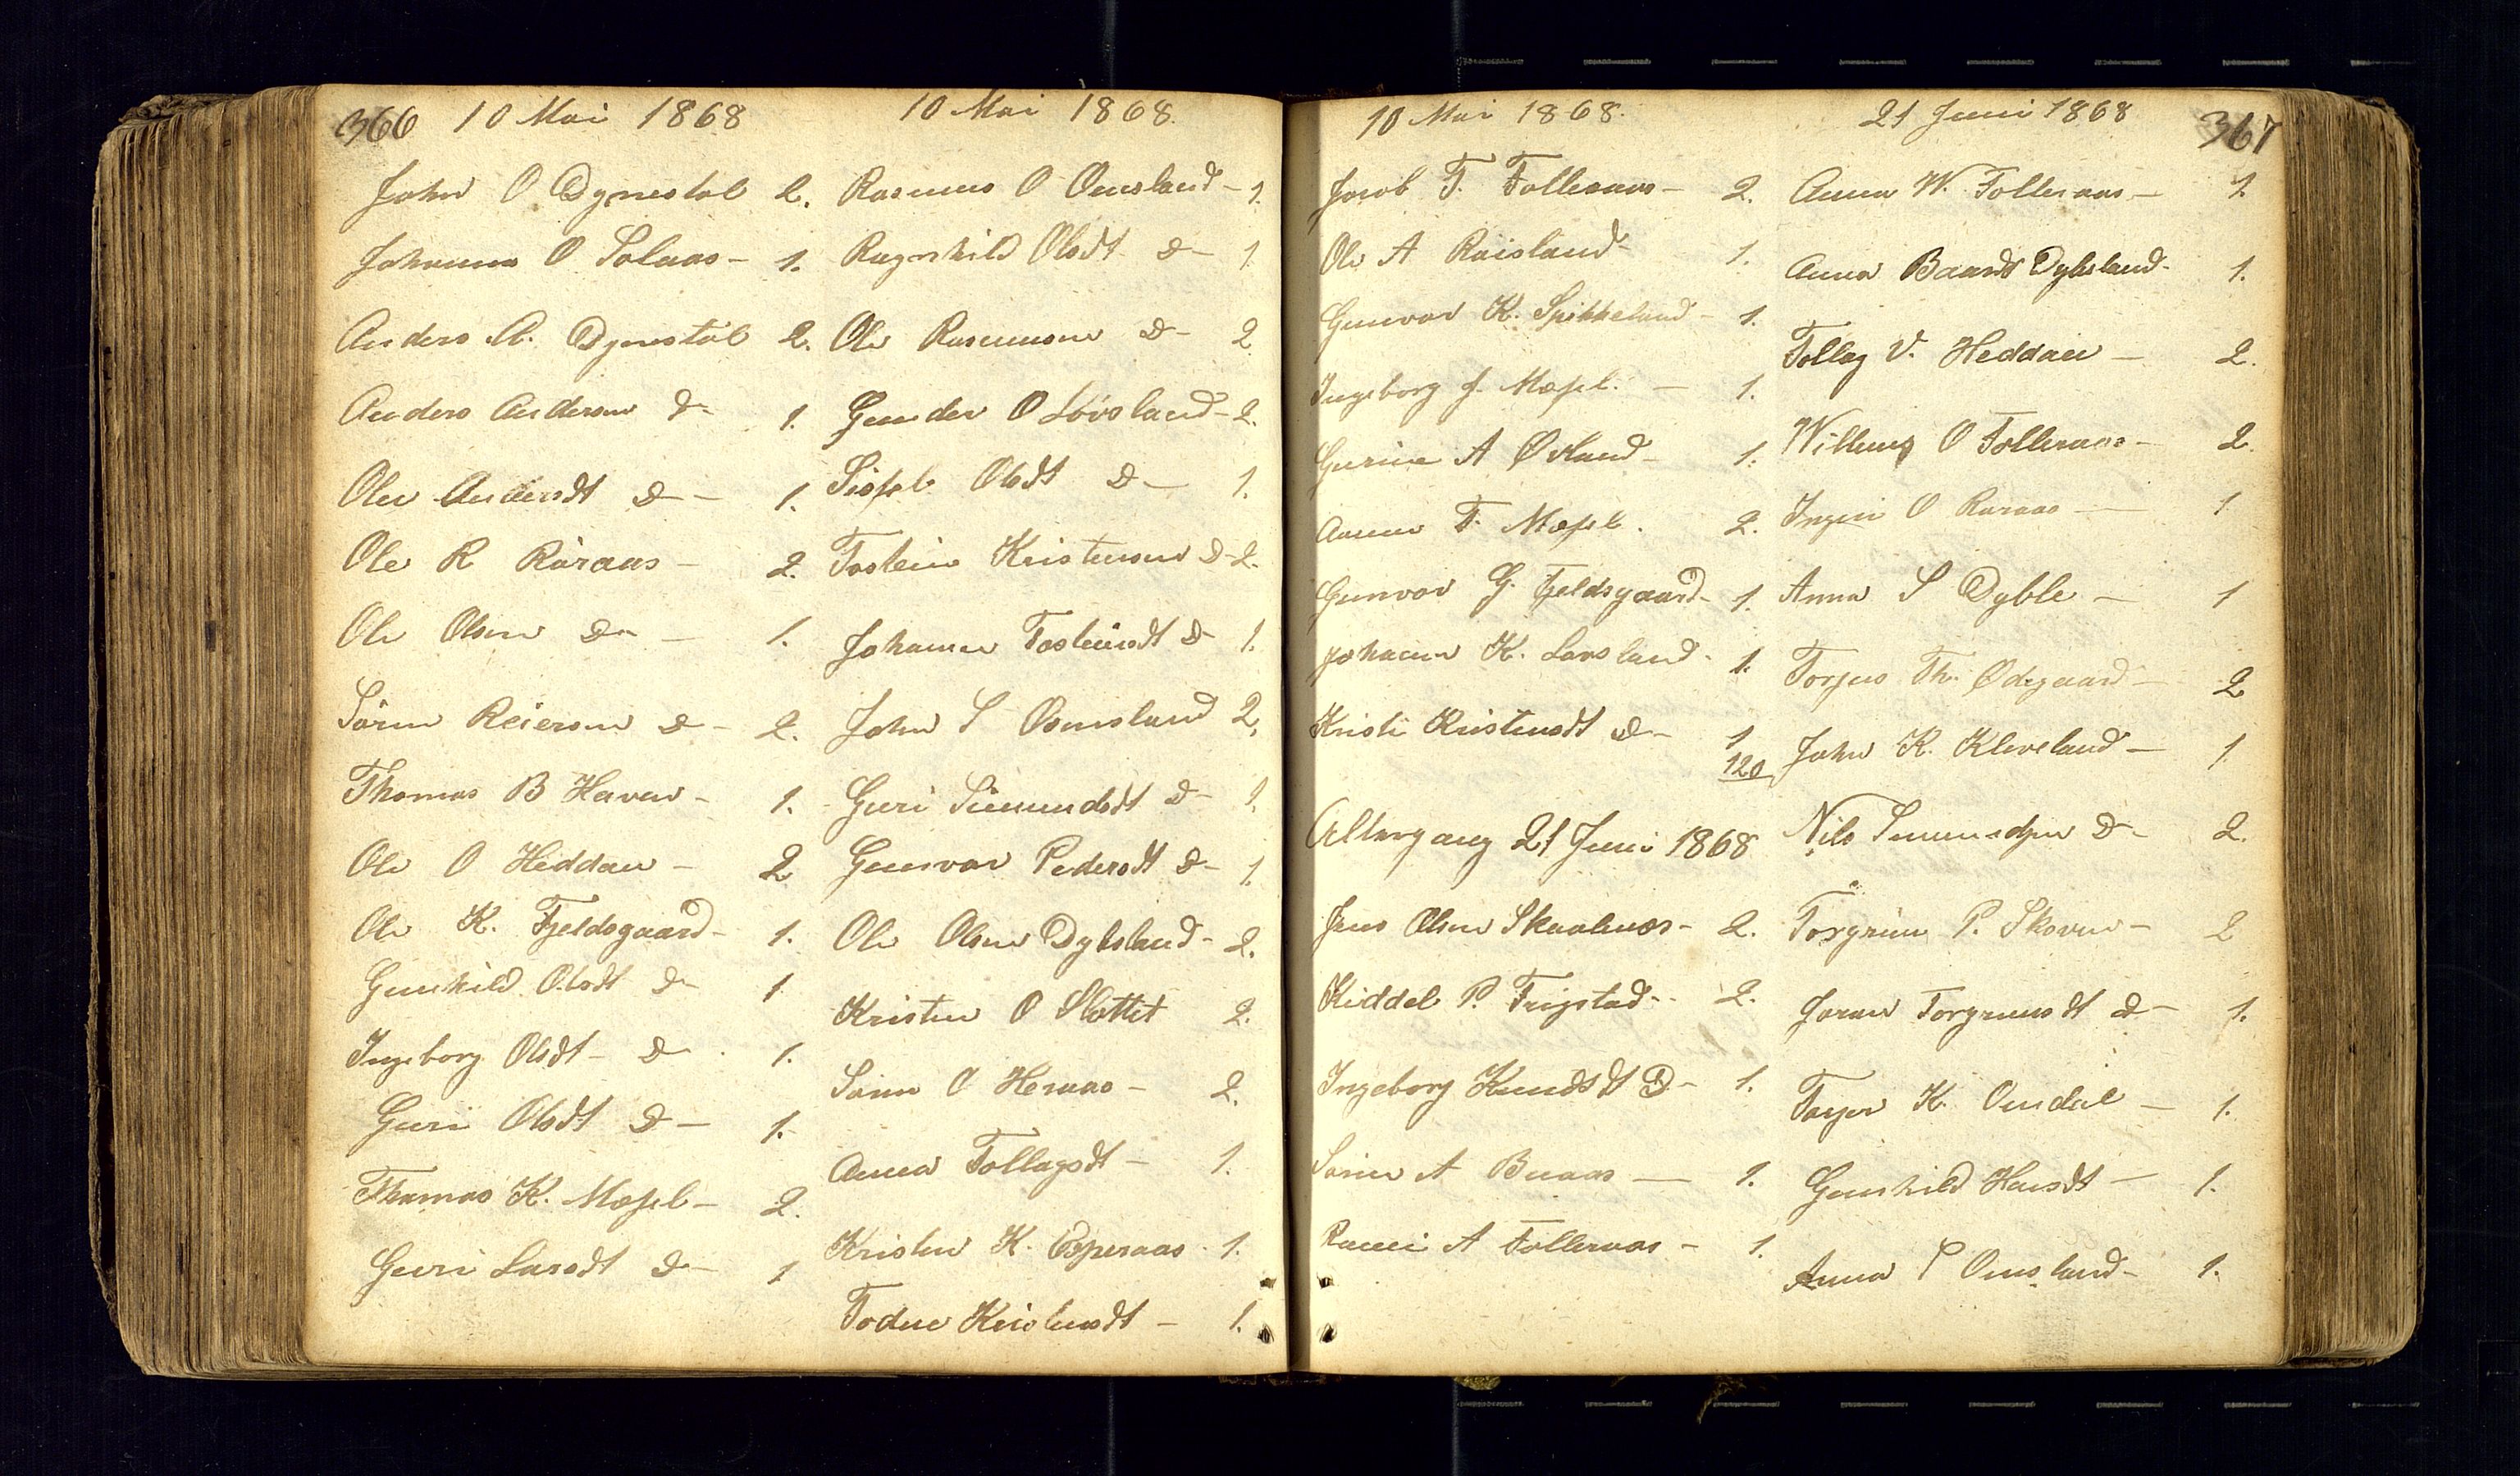 366 10 Mai 1868
John O Dynestøl 2.
Johanna O Solaas - 1.
Anders A. Dynestøl 2.
Anders Anderson D- 1.
Olev Andersdt D- - 1.
Ole R Røiraas - 2.
Ole Olsen D- - 1.
Søren Reiersen D- - 2.
Thomas B Haven - 1.
Ole O Heddan - 2
Ole K. Fjeldsgaard - 1.
Gunhild Olsdt D- 1
Ingeborg Olsdt - D- 1.
Guri Olsdt D- - 1.
Thomas K. Mæsel - 2.
Guri Larsdt D- 1
10 Mai 1868.
Rasmus O Omsland - 1.
Ragnhild Olsdt D- 1
Ole Rasmusen D- 2
Gunder O Løvsland - 2.
Sissel Olsdt D- 1.
Tostein Kristensen D- 2.
Johanne Tosteinsdt D- 1.
John S Omsland 2.
Guri Simundsdt D- 1.
Gunvor Pedersdt D- 1.
Ole Olsen Dybsland - 2.
Kristen O Slottet 2.
Søren O Heraas - 2.
Anna Tollagsdt - 1.
Kristen K. Esperaas - 1.
Todne Kristensdt - 1.
10 Mai 1868.
Jacob T. Tolleraas - 2.
Ole A Røisland 1.
Gunvor K. Spikkeland - 1.
Ingeborg J. Mæsel. - 1.
Gurine A Øiland - 1.
Anne T. Mæsel. 2.
Gunvor G. Fjeldsgaard - 1.
Johanne K. Løvsland - 1.
Kristi Kristensdt D- 1
120
Altergang 21 Juni 1868
Jens Olsen Skaalnæs - 2.
Kiddel P. Trigstad - 2.
Ingeborg Knudsdt D- 1.
Søren A Buaas - 1.
A Tolleraas - 1.
21 Juni 1868 367
Anna W. Tolleraas - 1.
Anna Baards Dybsland - 1.
Tollag V. Heddan - 2.
Willum O Tolleraas - 2.
Ingeri O Røraas - 1
Anna S Dyble - 1
Torjus Th. Ødegaard - 2
John K. Kleveland - 1
Nils Simundsen D- 2.
Torgrim P. Skoven - 2
Joran Torgrimsdt D- 1.
Torjer K. Omdal - 1.
Gunhild Hansdt - 1.
Anna T Omsland - 1.